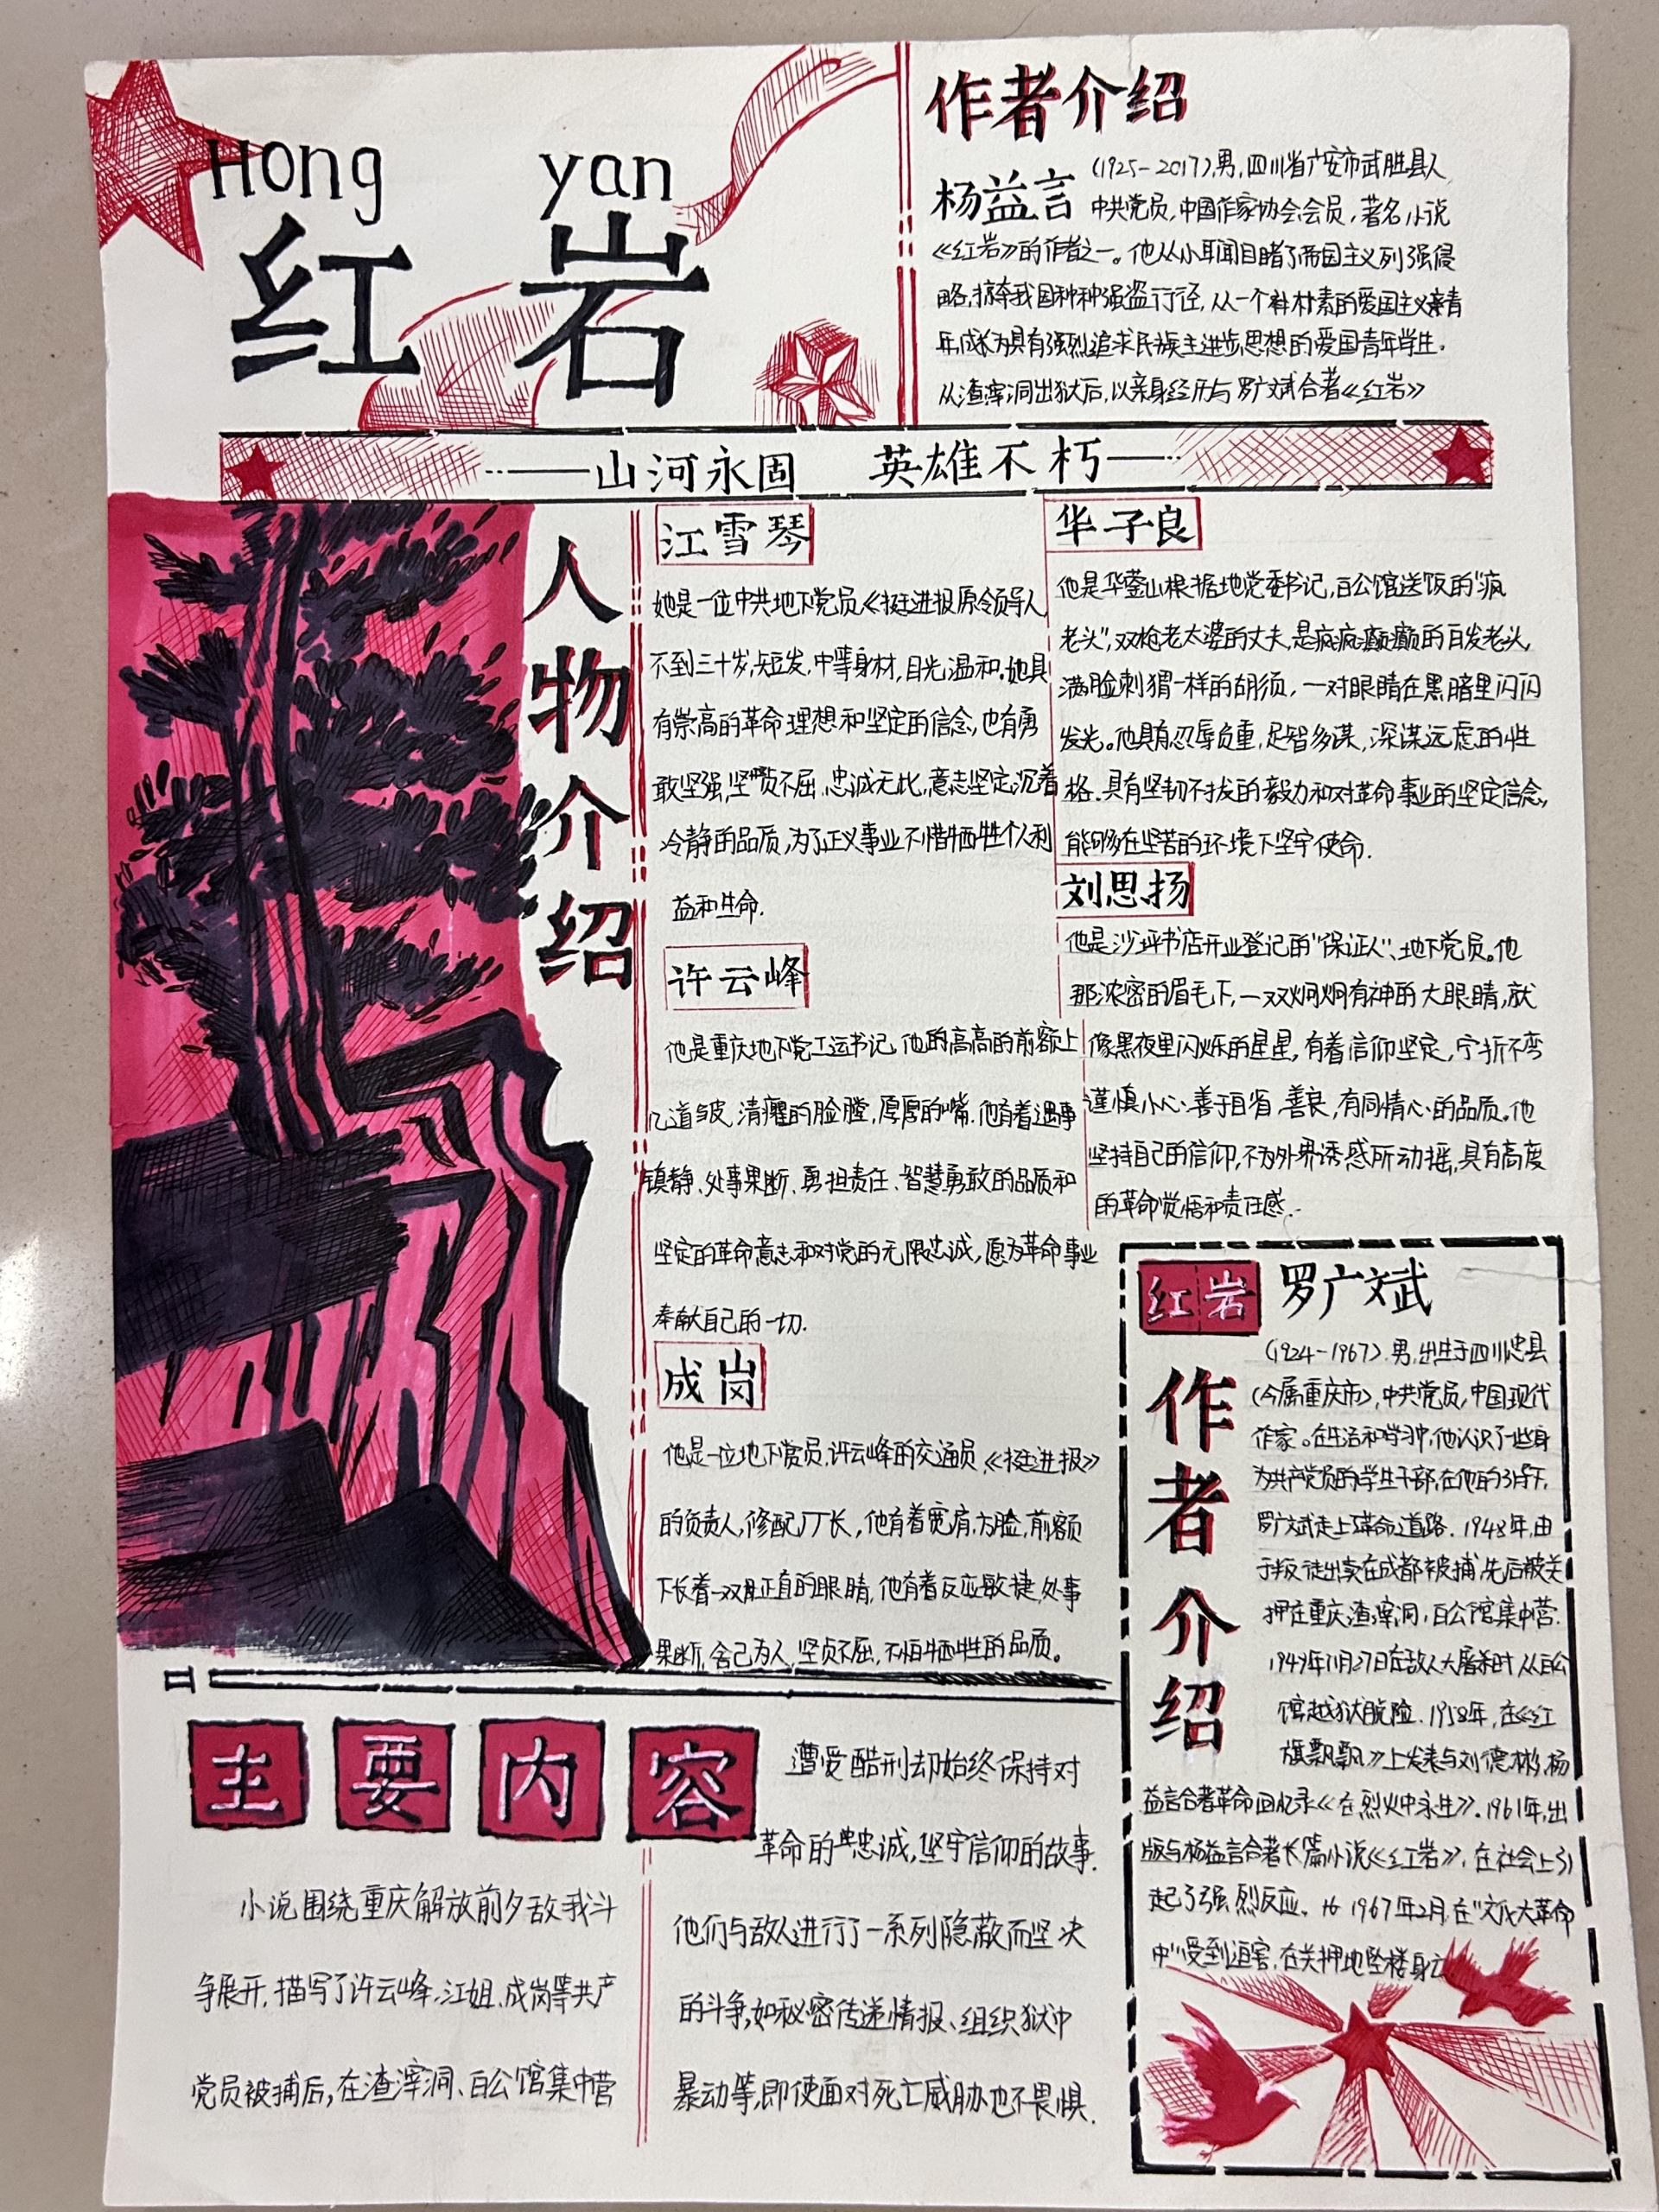 Hong yan
红岩
作者介绍
杨益言 (1925-2017),男,四川省广安市武胜县人
中共党员,中国作家协会会员,著名小说
《红岩》的作者之一。他从小耳闻目睹了帝国主义列强侵
略,掠夺我国种种强盗行径,从一个朴素的爱国主义青
年,成长为具有强烈追求民族主进步思想的爱国青年学生.
从渣滓洞出狱后,以亲身经历与罗广斌合著《红岩》
——山河永固 英雄不朽——
人物介绍
江雪琴
她是一位中共地下党员《挺进报原领导人
不到三十岁,短发,中等身材,目光温和.她具
有崇高的革命理想和坚定的信念,也有勇
敢坚强,坚贞不屈,忠诚无比,意志坚定,沉着
冷静的品质,为了正义事业不惜牺牲个人利
益和生命.
许云峰
他是重庆地下党工运书记,他的高高的前额上
几道皱皮,清癯的脸膛,厚厚的嘴.他有着遇事
镇静、处事果断、勇担责任、智慧勇敢的品质和
坚定的革命意志和对党的无限忠诚,愿为革命事业
奉献自己的一切.
成岗
他是一位地下党员,许云峰的交通员,《挺进报》
的负责人,修配厂厂长,他有着宽肩,方脸,前额
下长着一双正直的眼睛,他有着反应敏捷,处事
果断,舍己为人,坚贞不屈,不怕牺牲的品质。
华子良
他是华蓥山根据地党委书记,白公馆送饭的"疯
老头",双枪老太婆的丈夫,是疯疯癫癫的白发老头,
满脸刺猬一样的胡须,一对眼睛在黑暗里闪闪
发光。他具有忍辱负重,足智多谋,深谋远虑的性
格.具有坚韧不拔的毅力和对革命事业的坚定信念,
能够在坚苦的环境下坚守使命.
刘思扬
他是沙坪书店开业登记的"保证人"、地下党员。他
那浓密的眉毛下,一双炯炯有神的大眼睛,就
像黑夜里闪烁的星星,有着信仰坚定,宁折不弯
谨慎小心、善于自省,善良,有同情心的品质。他
坚持自己的信仰,不为外界诱惑所动摇,具有高度
的革命觉悟和责任感.
红岩 罗广斌
作者介绍
(1924-1967).男,出生于四川忠县
(今属重庆市),中共党员,中国现代
作家。在生活和学习中,他认识了一些身
为共产党员的学生干部,在他的引导下,
罗广斌走上革命道路.1948年,由
于叛徒出卖在成都被捕,先后被关
押在重庆渣滓洞,白公馆集中营.
1949年11月27日在敌人大屠杀时从白公
馆越狱脱险.1958年,在《红
旗飘飘》上发表与刘德彬,杨
益言合著革命回忆录《在烈火中永生》.1961年,出
版与杨益言合著长篇小说《红岩》,在社会上引
起了强烈反应. 1967年2月,在"文化大革命
中"受到迫害,在关押地坠楼身亡
主要内容
小说围绕重庆解放前夕敌我斗
争展开,描写了许云峰,江姐,成岗等共产
党员被捕后,在渣滓洞、白公馆集中营
遭受酷刑却始终保持对
革命的忠诚,坚守信仰的故事.
他们与敌人进行了一系列隐蔽而坚决
的斗争,如秘密传递情报、组织狱中
暴动等,即使面对死亡威胁也不畏惧.